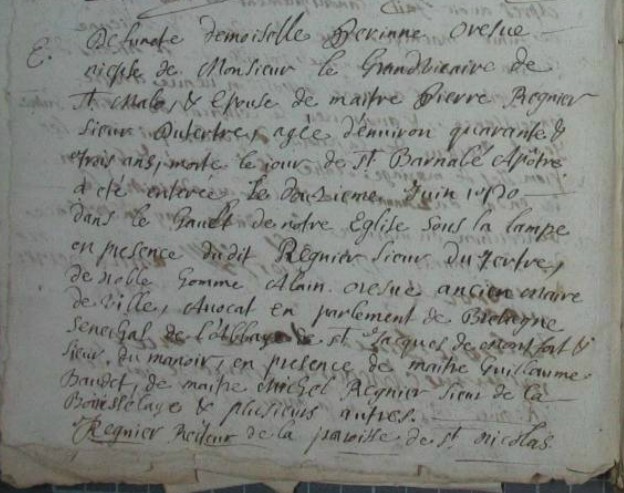 E. Defunte demoiselle Perinne oresve
niepse de Monsieur le Grandvicaire de
St Malo, & Epuse de maitre Pierre Regnier
sieur Dutertre, agée d'environ quarante &
trois ans, morte le jour de St Barnabé Apôtre
a été enterée le douzieme Juin
dans le haut de notre Eglise sous la lampe
en presence dudit Regnier sieur Du tertre,
de noble homme Alain oresve ancien maire
de ville, Avocat en parlement de Bretagne
senechal de l'Abbaye de St Jacques de montfort &
sieur du manoir, en presence de maitre Guillaume
Baudet, de maitre Michel Regnier sieur de la
& plusieurs autres.
Regnier Recteur de la paroisse de St nicolas